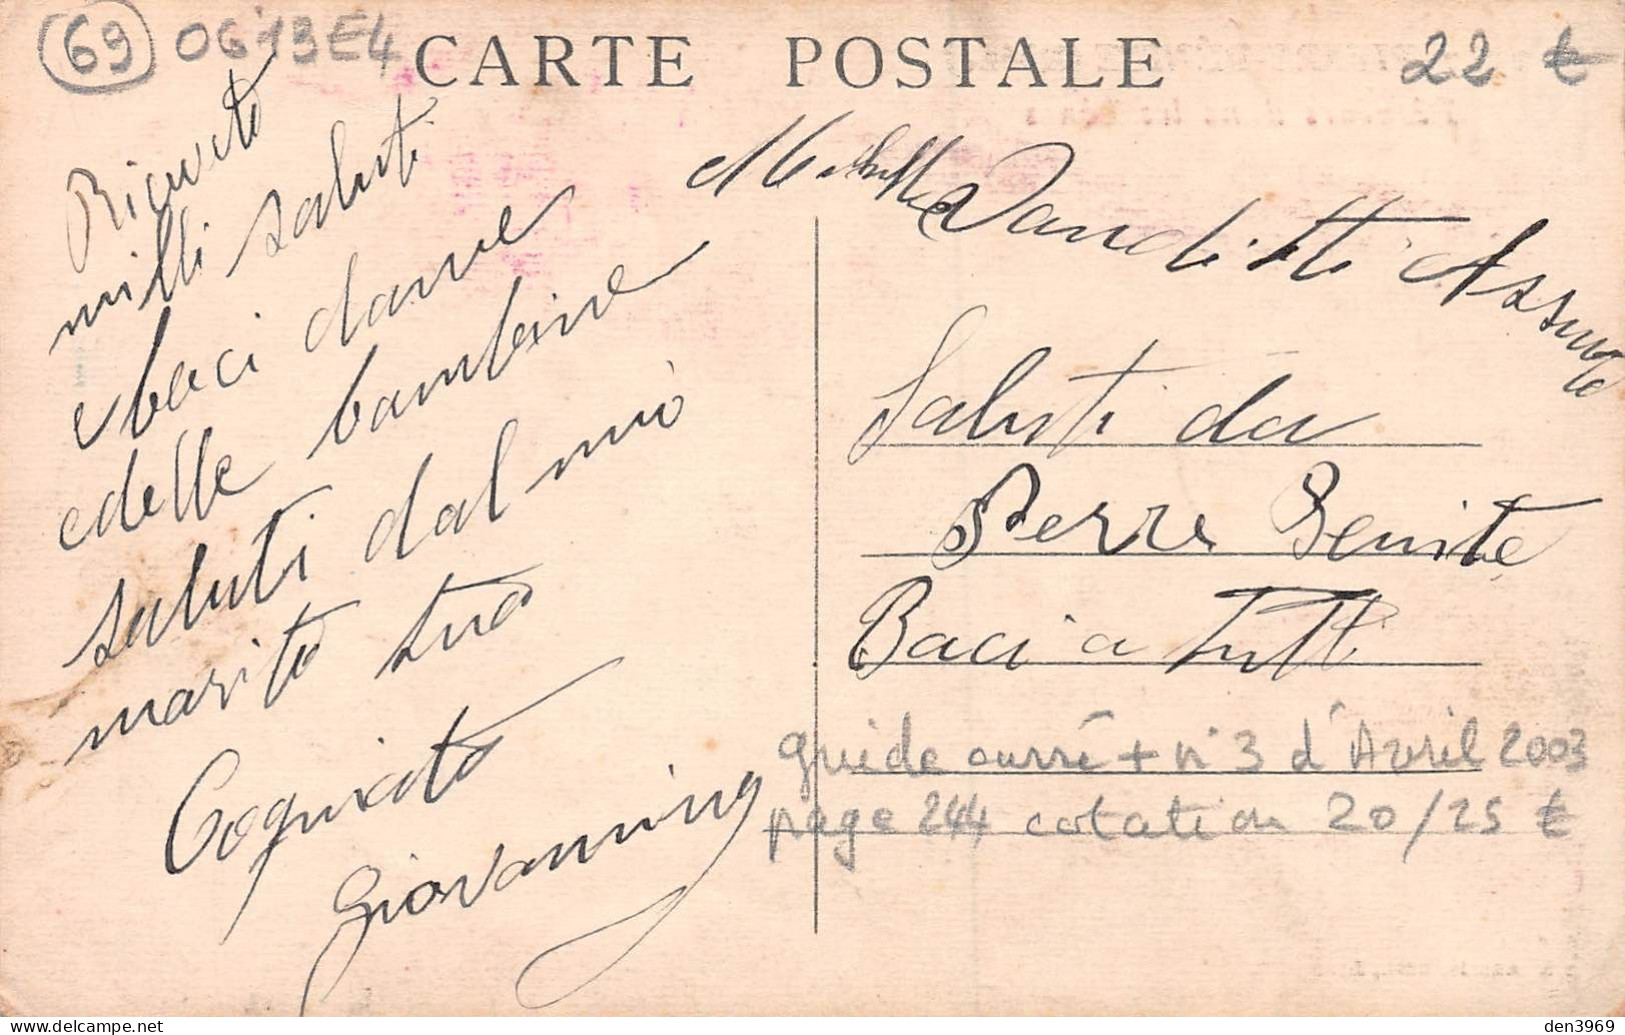 69 0613E4
CARTE POSTALE
22 €
Ricevete
milli saluti
e baci dame
e delle bambine
saluti dal mio
marito tua
Cogniata
Giovannina
Vanditti Assunta
Saluti da
Pierre Benite
Baci a tutti
guide curré + n°3 d'Avril 2003
page 244 cotation 20/25 €
den3969